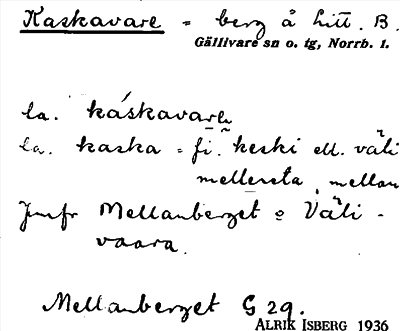 Kaskavare = berg å litt. B.
Gällivare sn o. tg, Norrb. l.
la. káskavarẹ
la. kaska = fi. keski ell. väli
mellersta, mellan
Jmfr Mellanberget o Väli-
vaara.
Mellanberget G 29.
ALRIK ISBERG 1936